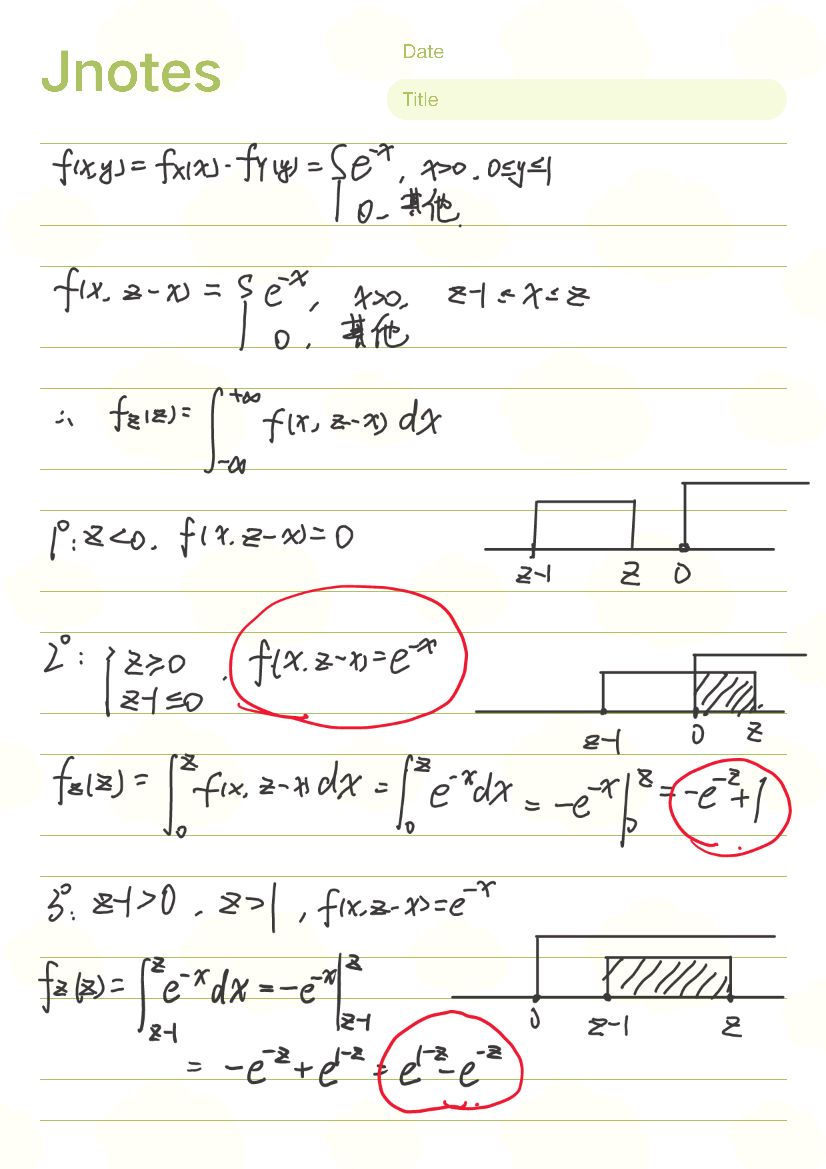 Jnotes
Date
Title
f(x,y) = fX(x)·fY(y) = { e^{-x}, x>0, 0≤y≤1
0, 其他.
f(x, z-x) = { e^{-x}, x>0, z-1≤x≤z
0, 其他
∴ fz(z) = ∫_{-∞}^{+∞} f(x, z-x) dx
1°: z<0, f(x, z-x) = 0
z-1 z 0
2°: { z≥0
z-1≤0 , f(x, z-x) = e^{-x}
z-1 0 z
fz(z) = ∫_0^z f(x, z-x) dx = ∫_0^z e^{-x} dx = -e^{-x}|_0^z = -e^{-z}+1
3°: z-1>0, z>1, f(x, z-x) = e^{-x}
fz(z) = ∫_{z-1}^z e^{-x} dx = -e^{-x}|_{z-1}^z
0 z-1 z
= -e^{-z} + e^{1-z} = e^{1-z} - e^{-z}